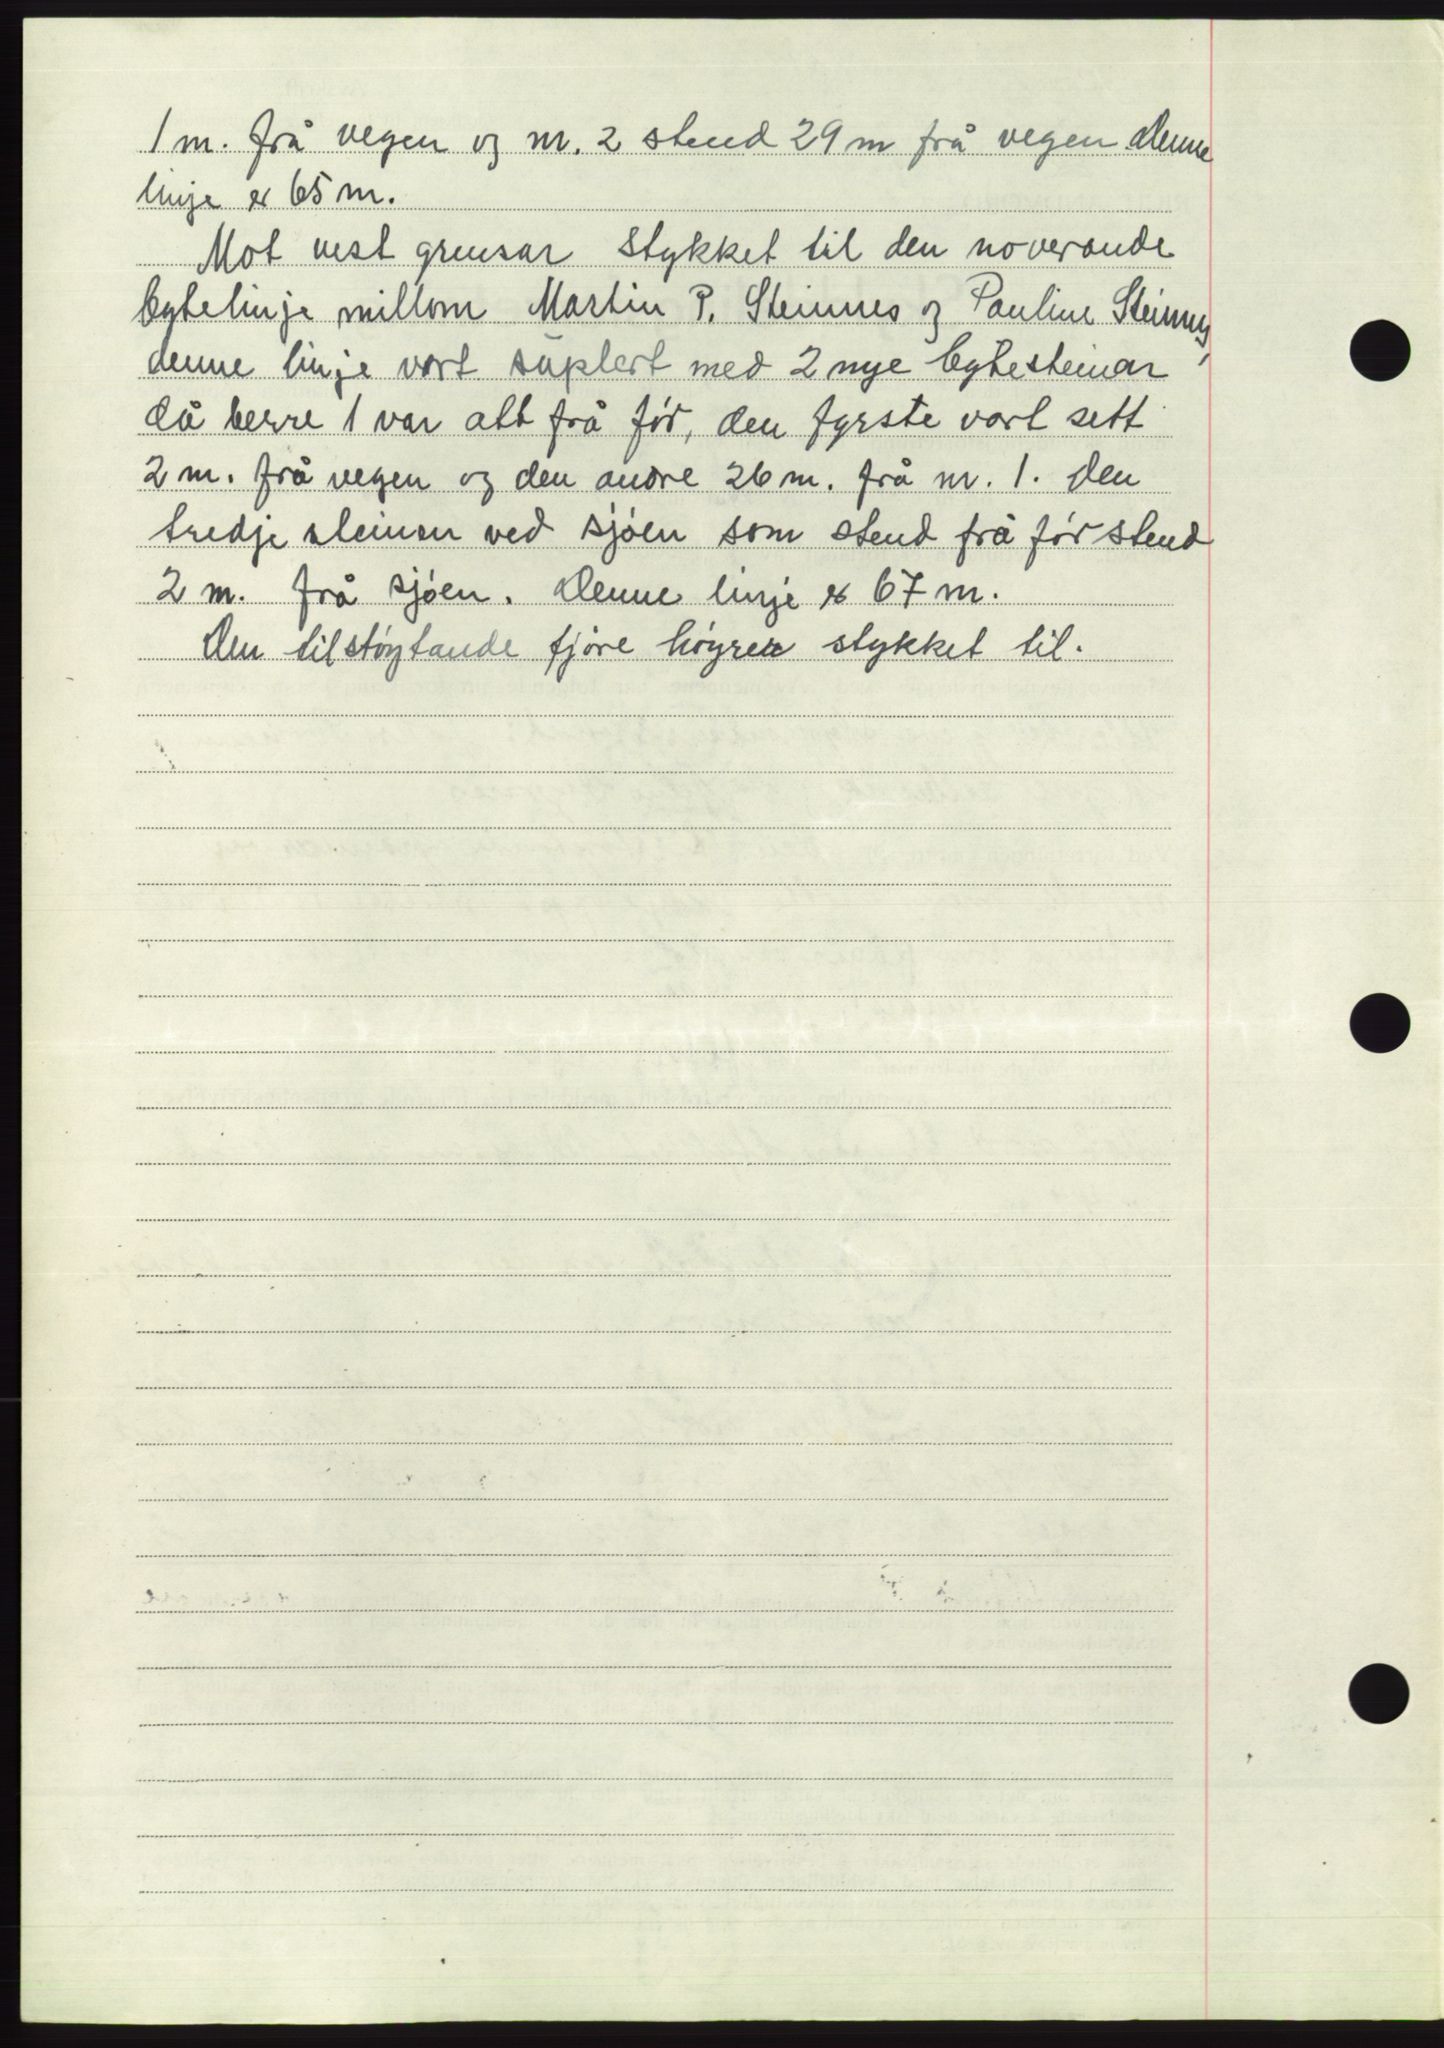 1 m. frå vegen og nr. 2 stend 29 m frå vegen. Denne
linje er 65 m.
Mot vest grensar stykket til den noverande
bytelinje millom Martin P. Steinnes og Pauline Steinnes,
denne linje vart suplert med 2 nye bytesteinar
då berre 1 var att frå før, den fyrste vart sett
2 m. frå vegen og den andre 26 m. frå nr. 1. den
tredje steinen ved sjøen som stend frå før stend
2 m. frå sjøen. Denne linje er 67 m.
Den tilstøytande fjøre høyrer stykket til.